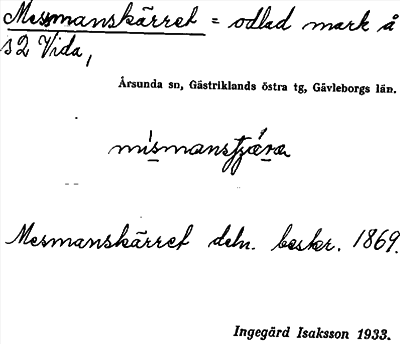 Mesmanskärret = odlad mark å
s2 Vida,
Årsunda sn, Gästriklands östra tg, Gävleborgs län.
Mesmanskärret deln. beskr. 1869.
Ingegärd Isaksson 1933.